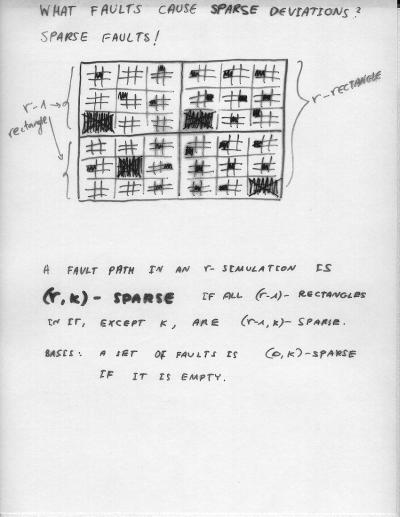 WHAT FAULTS CAUSE SPARSE DEVIATIONS?
SPARSE FAULTS!
r-1
rectangle
r-RECTANGLE
A FAULT PATH IN AN r-SIMULATION IS
(r,k)-SPARSE IF ALL (r-1)-RECTANGLES
IN IT, EXCEPT K, ARE (r-1,k)-SPARSE.
BASIS: A SET OF FAULTS IS (0,K)-SPARSE
IF IT IS EMPTY.